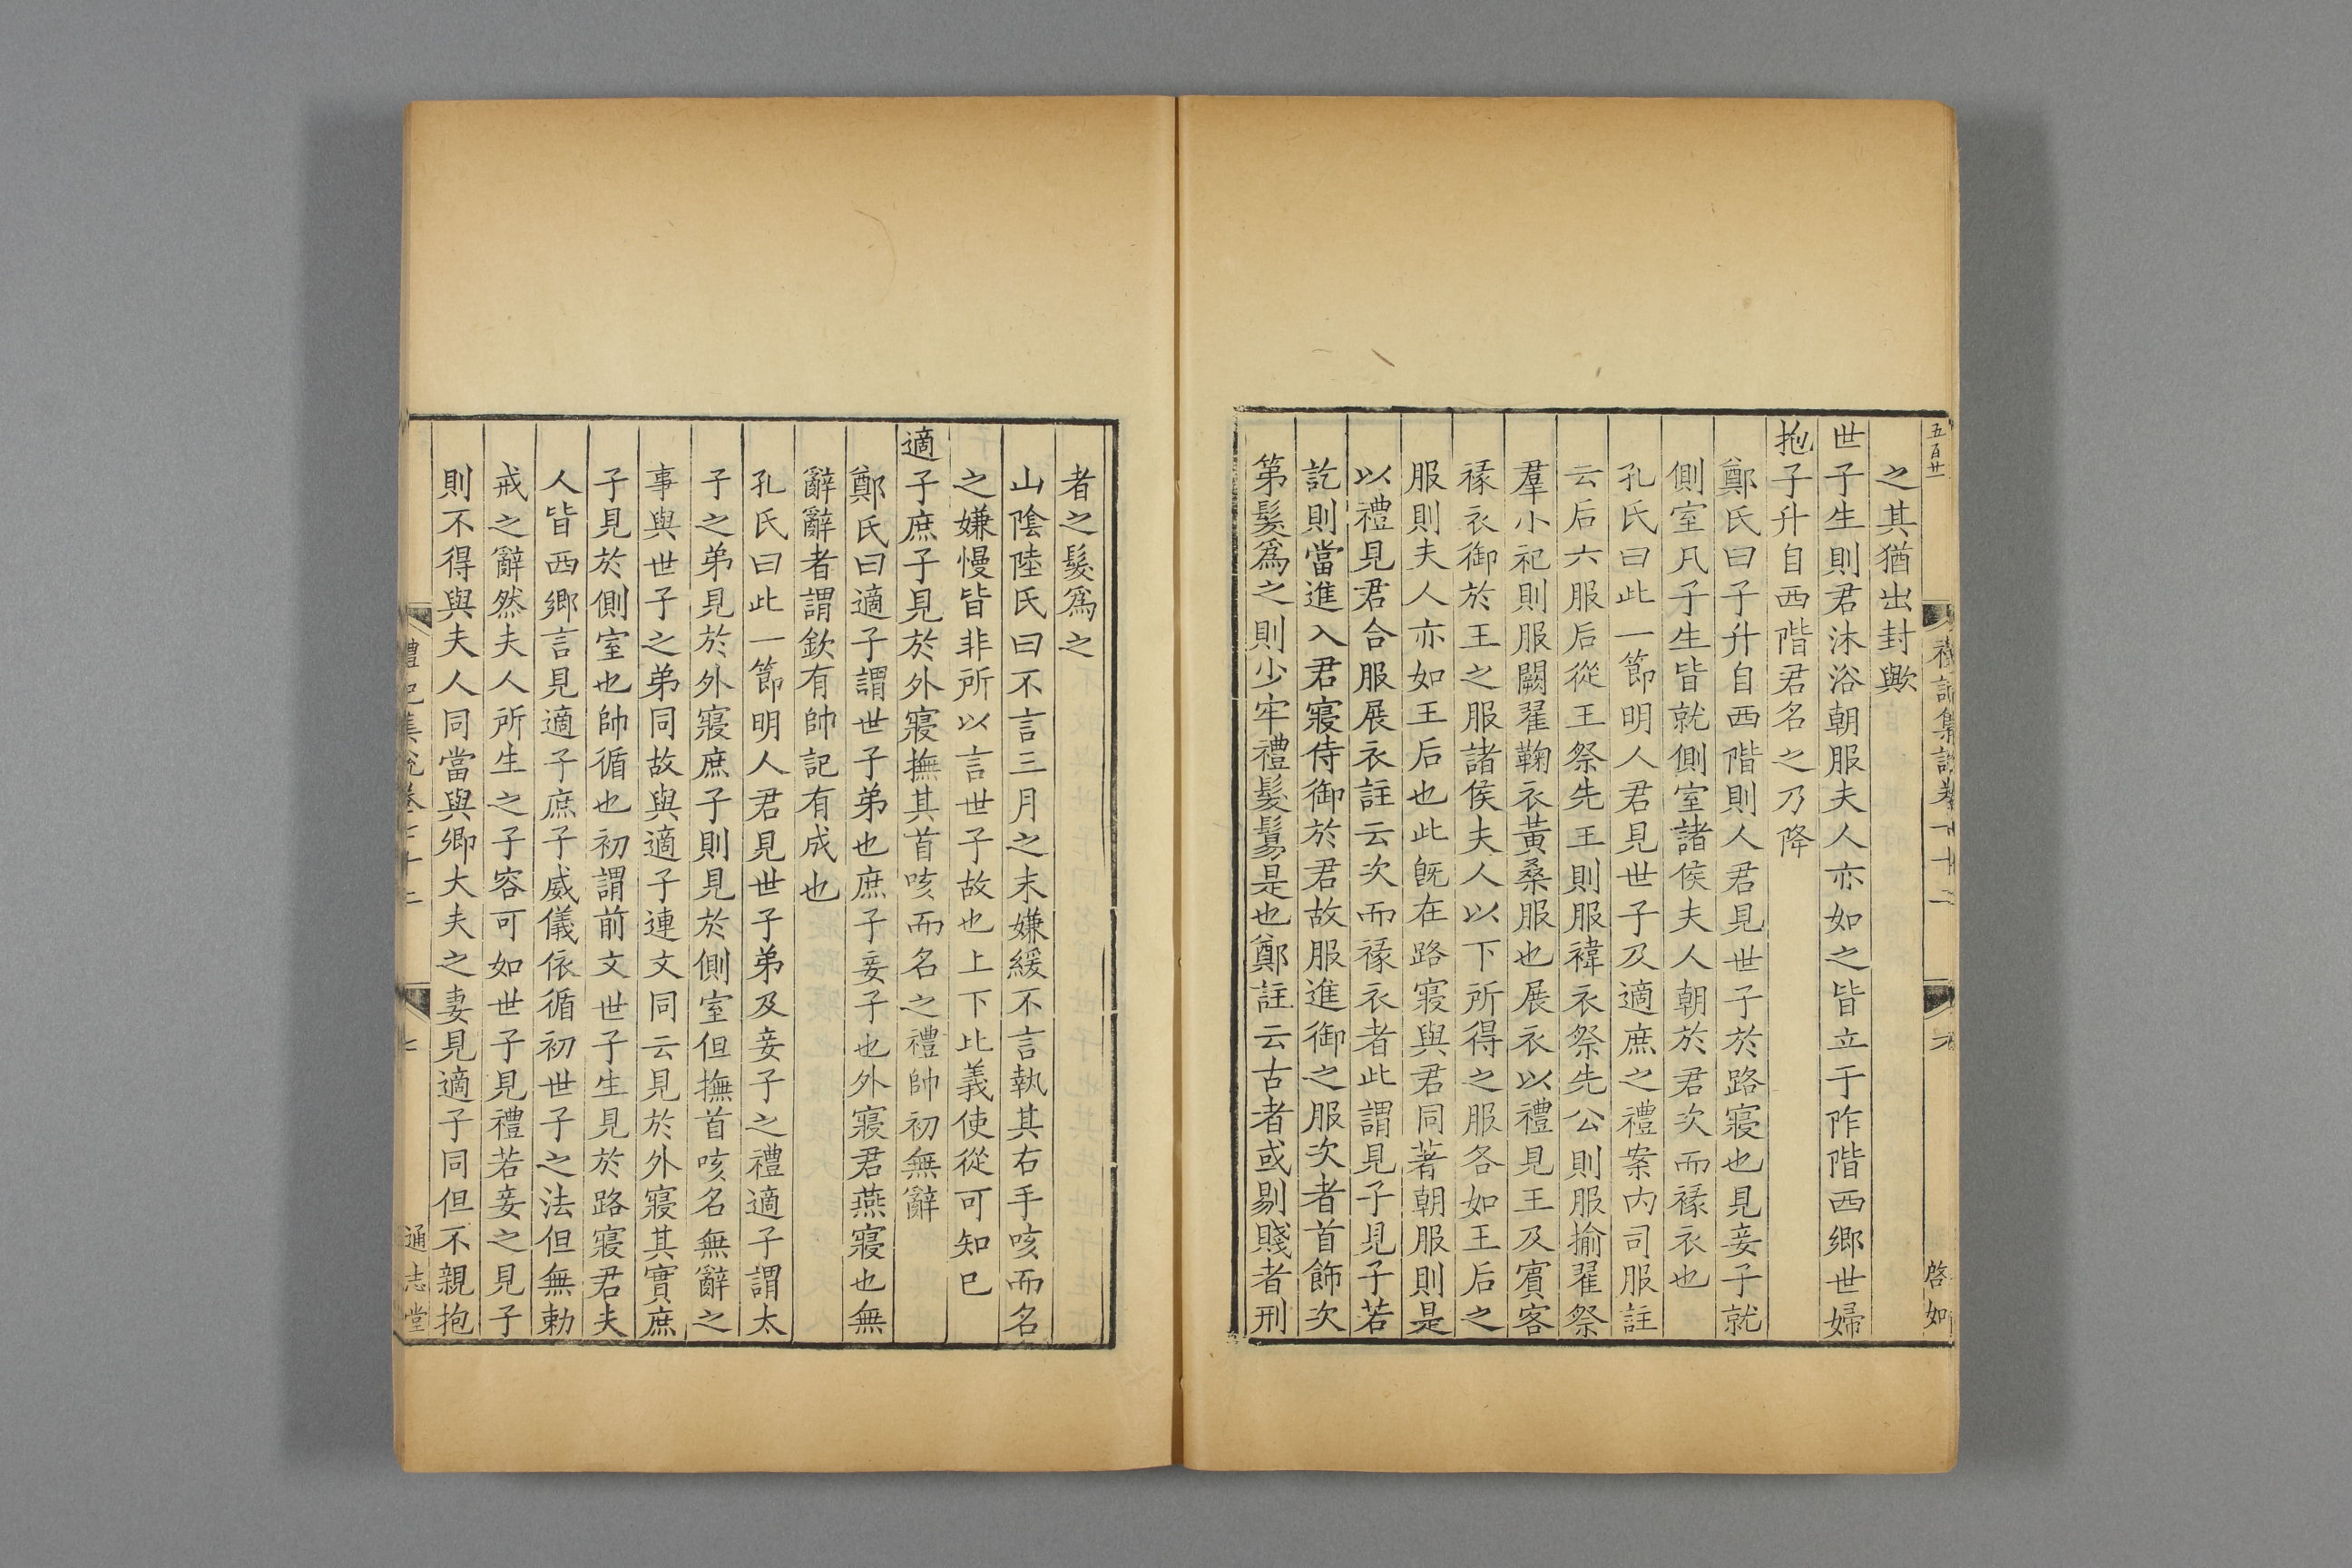 五百廿一
禮記集說卷七十二
六
啓如
之其猶出封歟
世子生則君沐浴朝服夫人亦如之皆立于阼階西鄉世婦
抱子升自西階君名之乃降
鄭氏曰子升自西階則人君見世子於路寢也見妾子就
側室凡子生皆就側室諸侯夫人朝於君次而褖衣也
孔氏曰此一節明人君見世子及適庶之禮案内司服註
云后六服后從王祭先王則服褘衣祭先公則服揄翟祭
羣小祀則服闕翟鞠衣黃桑服也展衣以禮見王及賓客
褖衣御於王之服諸侯夫人以下所得之服各如王后之
服則夫人亦如王后也此旣在路寢與君同著朝服則是
以禮見君合服展衣註云次而褖衣者此謂見子見子若
訖則當進入君寢侍御於君故服進御之服次者首飾次
第髮爲之則少牢禮髲鬄是也鄭註云古者或剔賤者刑
者之髮爲之
山陰陸氏曰不言三月之末嫌緩不言執其右手咳而名
之嫌慢皆非所以言世子故也上下比義使從可知已
適子庶子見於外寢撫其首咳而名之禮帥初無辭
鄭氏曰適子謂世子弟也庶子妾子也外寢君燕寢也無
辭辭者謂欽有帥記有成也
孔氏曰此一節明人君見世子弟及妾子之禮適子謂太
子之弟見於外寢庶子則見於側室但撫首咳名無辭之
事與世子之弟同故與適子連文同云見於外寢其實庶
子見於側室也帥循也初謂前文世子生見於路寢君夫
人皆西鄉言見適子庶子威儀依循初世子之法但無勅
戒之辭然夫人所生之子容可如世子見禮若妾之見子
則不得與夫人同當與卿大夫之妻見適子同但不親抱
禮記集說卷七十二
七
通志堂